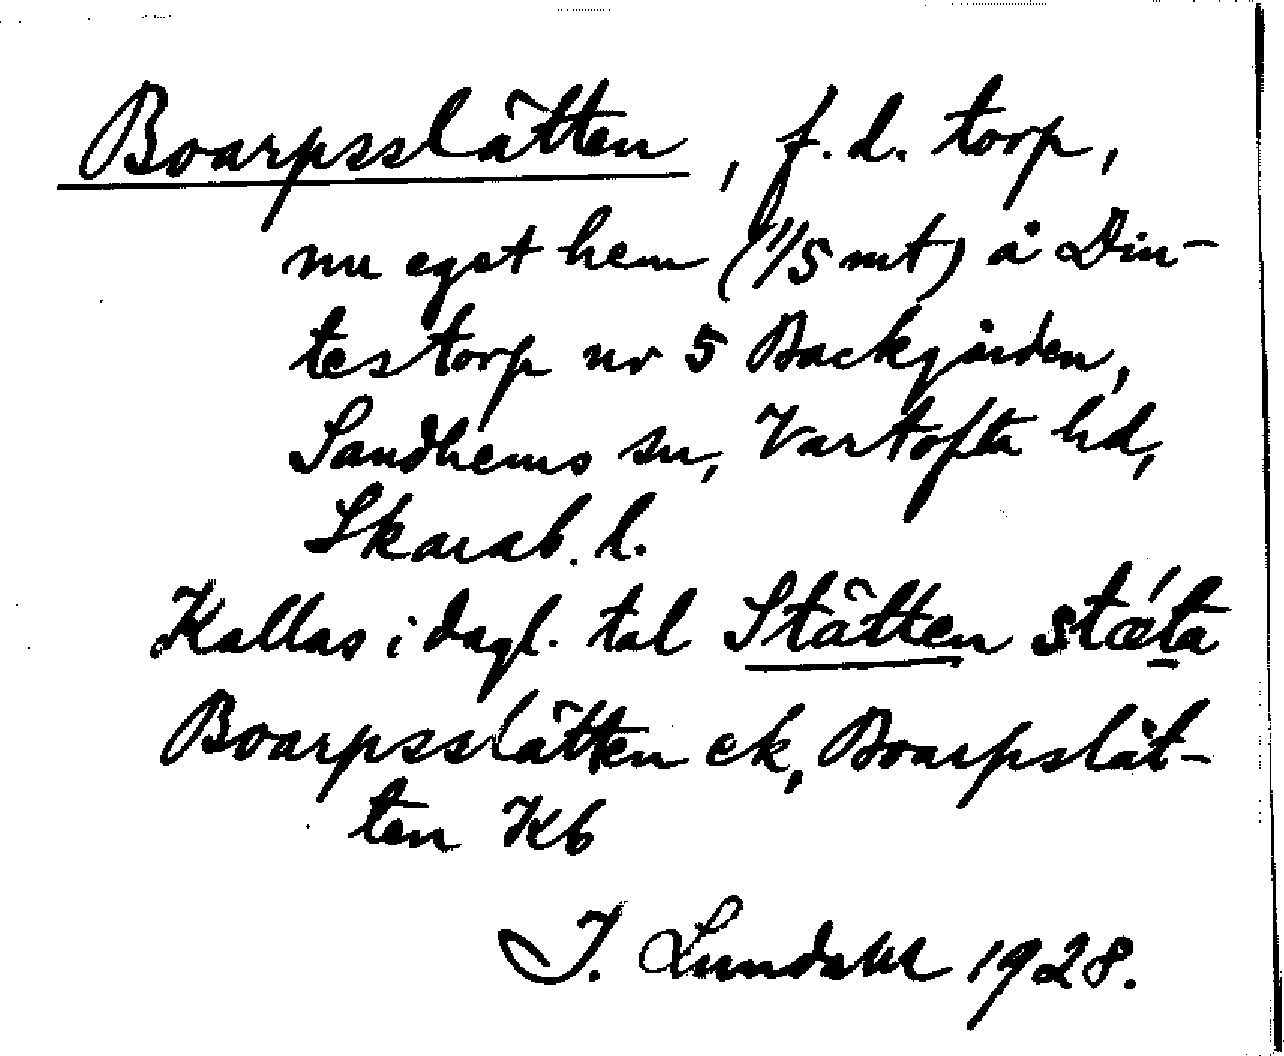 Boarpsslätten, f.d. torp,
nu eget hem (1/5 mt) å Din-
testorp nr 5 Backgården,
Sandhems sn, Vartofta hd,
Skarab. l.
Kallas i dagl. tal Stätten stǽta
Boarpsslätten ek, Boarpslät-
ten Kb
I. Lundahl 1928.